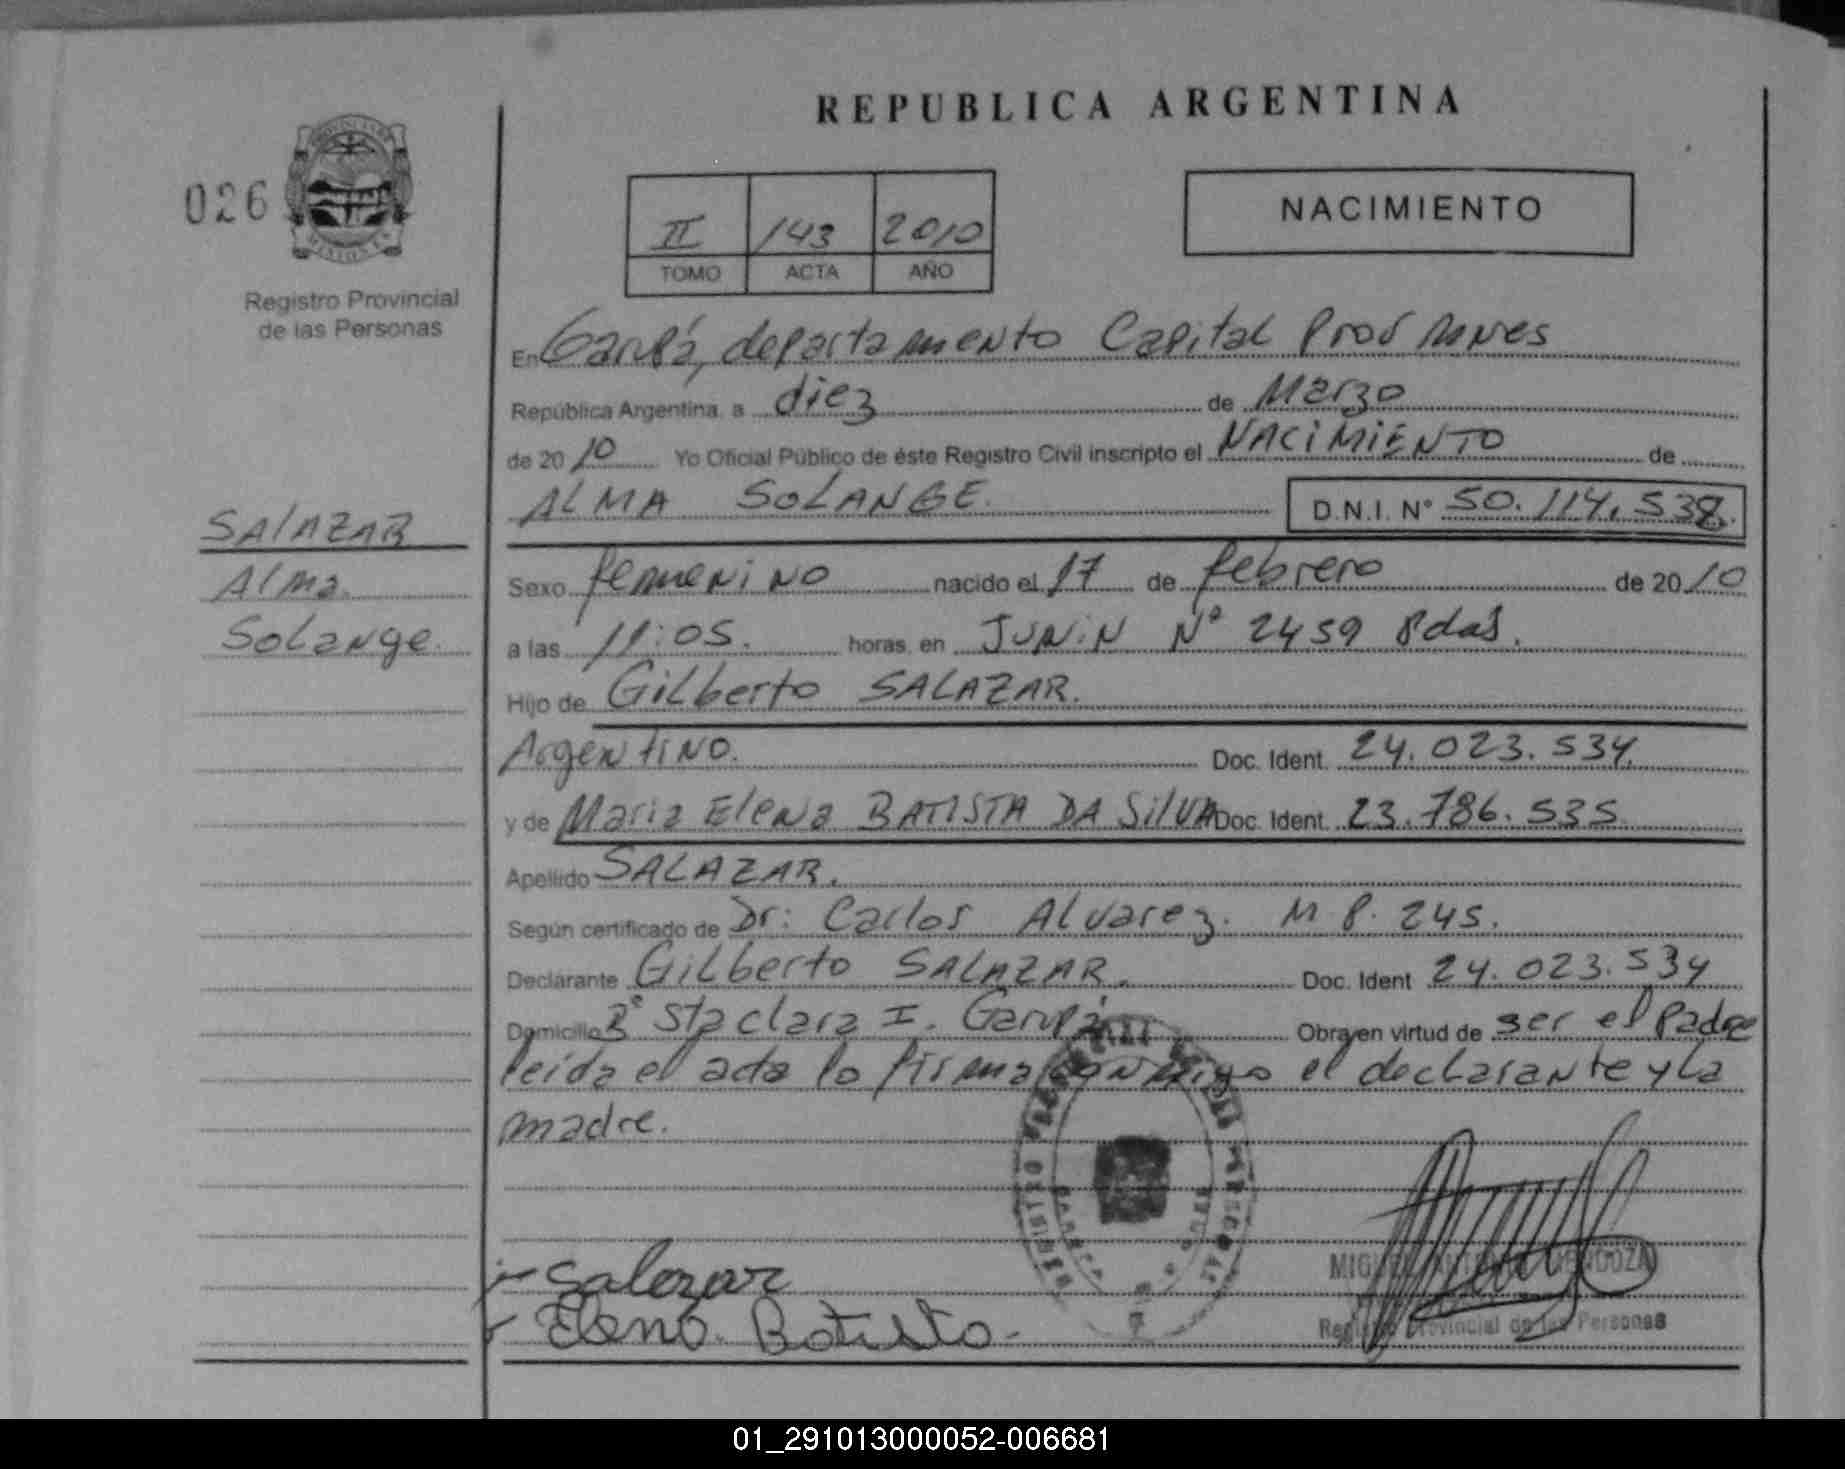 REPUBLICA ARGENTINA
026
PROVINCIA DE
MISIONES
Registro Provincial
de las Personas
II 143 2010
TOMO ACTA AÑO
NACIMIENTO
En Garupá, departamento Capital Prov
República Argentina, a diez de Marzo
de 2010 Yo Oficial Público de éste Registro Civil inscripto el NACIMIENTO de
ALMA SOLANGE. D.N.I. N° 50.114.538.
SALAZAR
Alma
Solange.
Sexo femenino nacido el 17 de febrero de 2010
a las 11:05. horas, en JUNIN N° 2459 Pdas.
Hijo de Gilberto SALAZAR.
Argentino. Doc. Ident. 24.023.534.
y de Maria Elena BATISTA DA SilVA Doc. Ident. 23.786.535
Apellido SALAZAR.
Según certificado de Dr: Carlos Alvarez. M P. 245.
Declarante Gilberto SALAZAR. Doc. Ident 24.023.534
Domicilio B° Sta clara I. Garupá Obra en virtud de ser el Padre
leída el acta lo firma conmigo el declarante y la
madre.
Salazar
Elena Batista
MIGUEL ANTONIO MENDOZA
Registro Provincial de las Personas
01_291013000052-006681